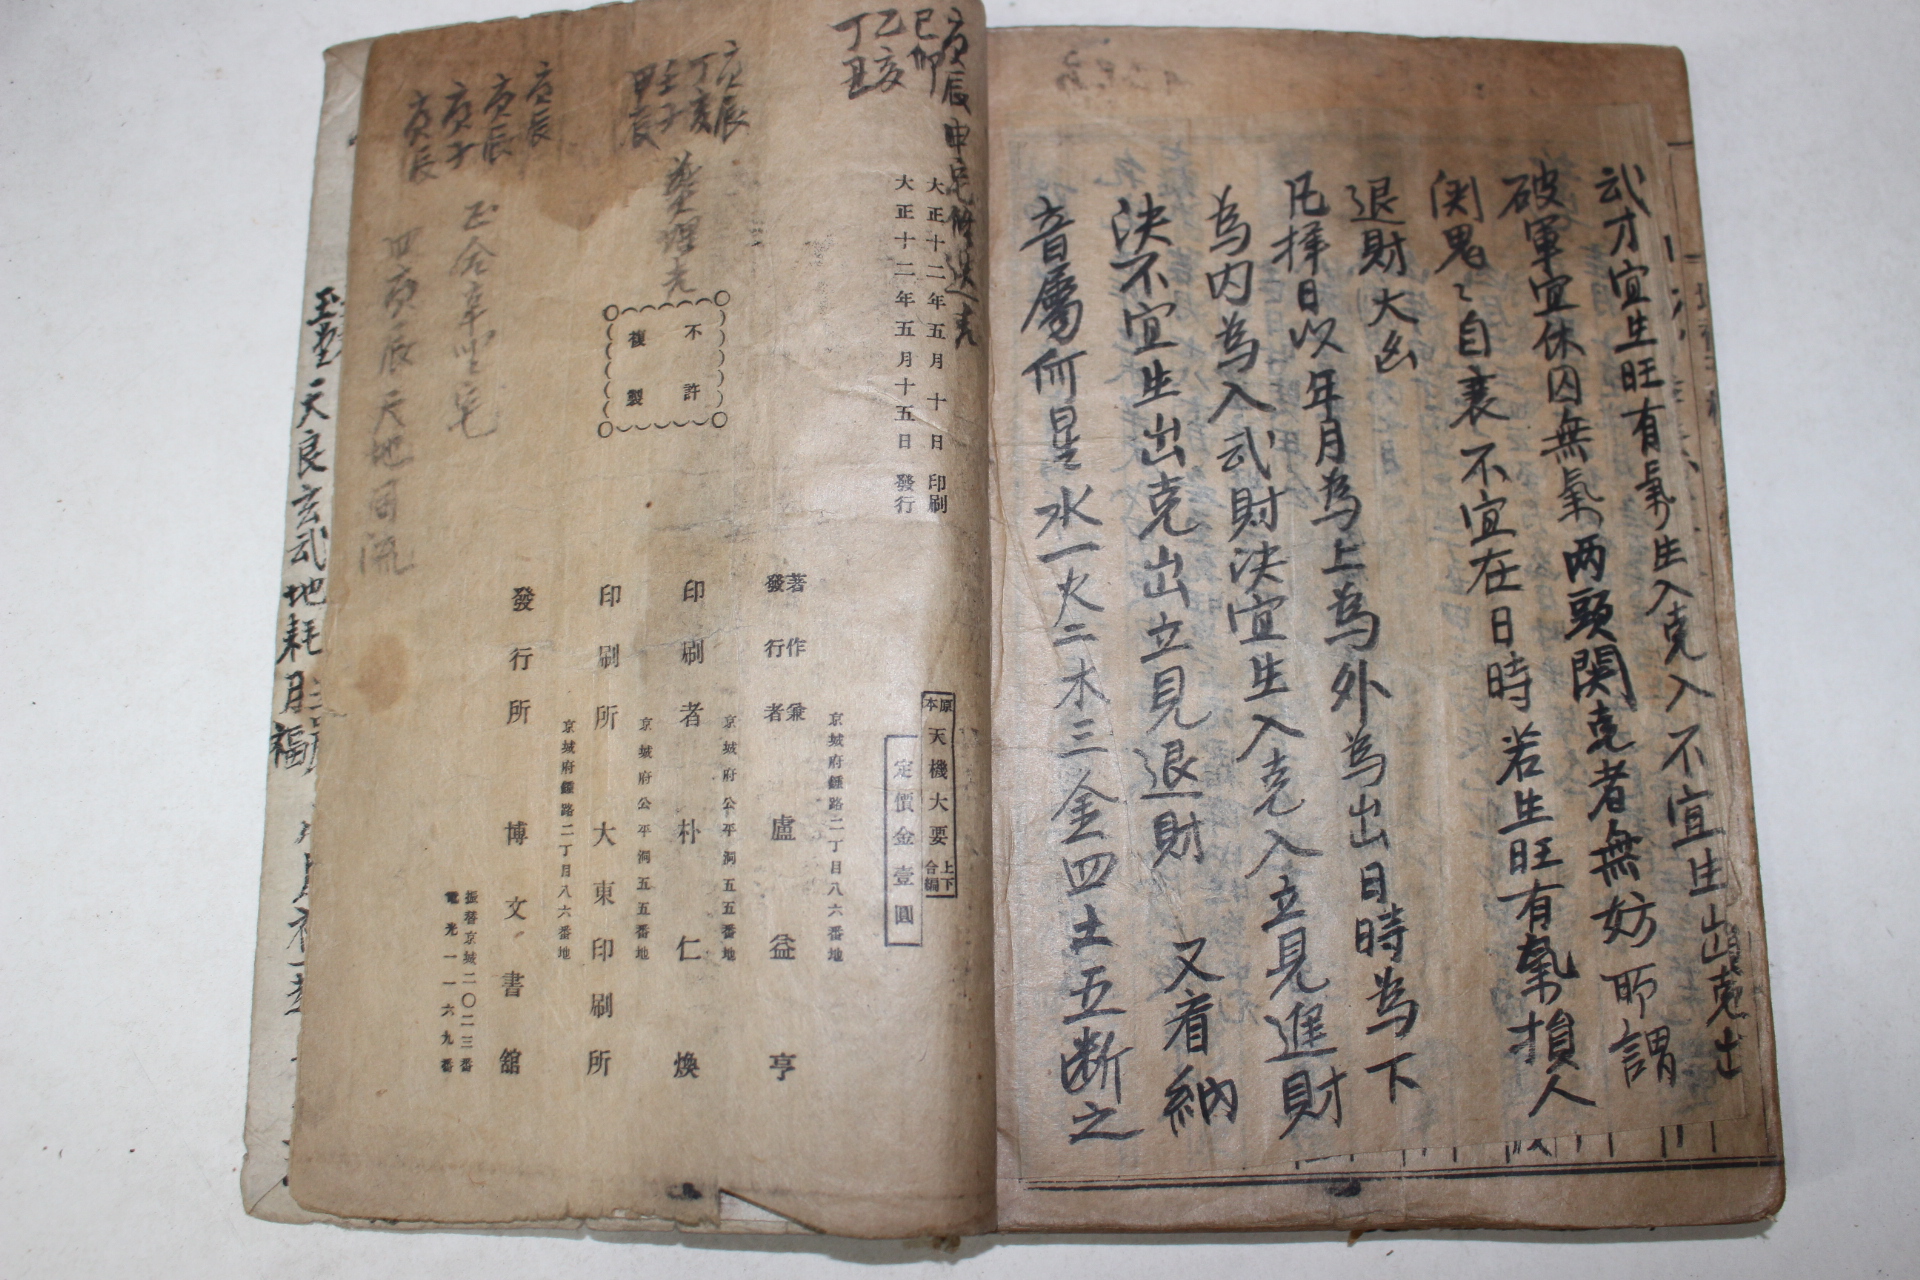 武才宜生旺有氣生入克入不宜生出克出
破軍宜休囚無氣两頭関克者無妨所謂
関鬼〻自衰不宜在日時若生旺有氣損人
退財大凶
凡擇日以年月為上為外為出日時為下
為内為入武財決宜生入克入立見進財
決不宜生出克出立見退財 又看納
音屬何星水一火二木三金四土五断之
庚辰
己卯
乙亥
丁丑
大正十二年五月十日印刷
大正十二年五月十五日發行
不許
複製
原本 天機大要 上下合編
定價金壹圓
京城府鍾路二丁目八六番地
著作兼
發行者 盧益亨
京城府公平洞五五番地
印刷者 朴仁煥
京城府公平洞五五番地
印刷所 大東印刷所
京城府鍾路二丁目八六番地
發行所 博文書舘
振替京城二〇二三番
電光一一六九番
庚辰
丁亥
壬子
甲辰
庚辰
庚辰
庚子
庚辰
四庚辰天地同流
玉堂天良玄武地耗